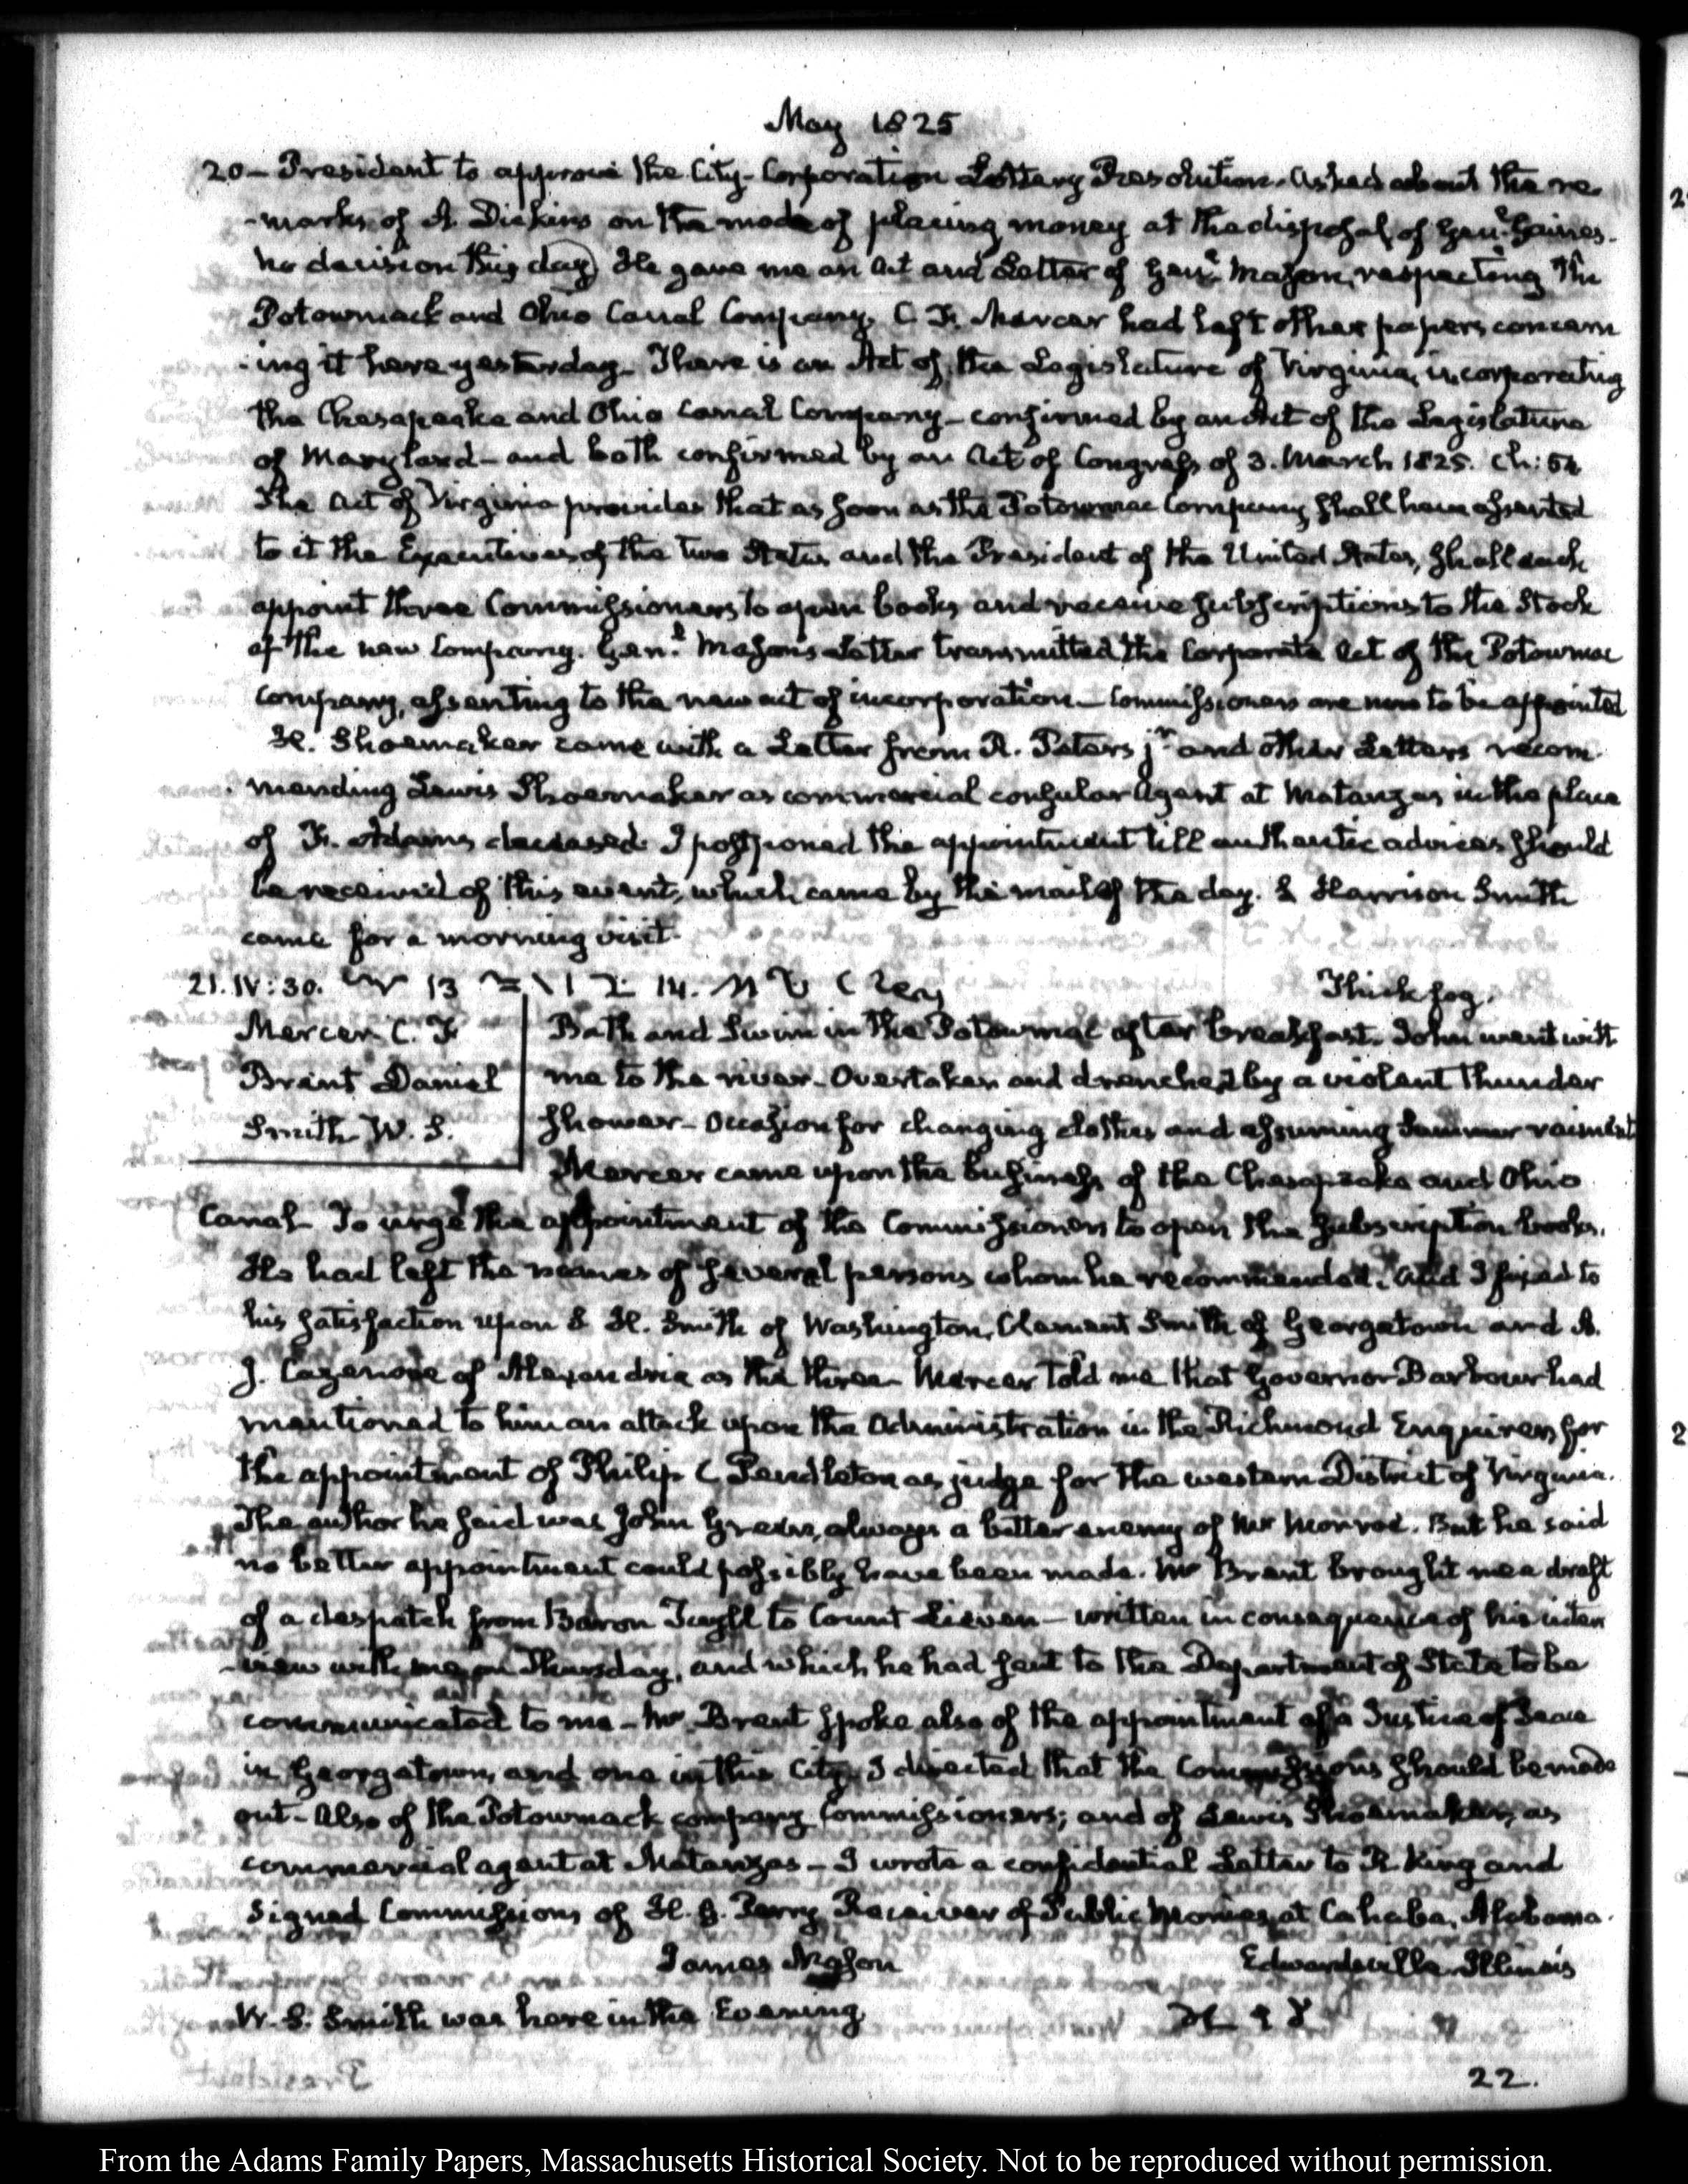 May 1825
20 – President to approve the City-Corporation Lottery Resolution. Asked about the re-
-marks of A. Dickins on the mode of placing money at the disposal of Genl. Gaines.
no decision this day) He gave me an Act and Letter of Genl. Mason, respecting the
Potowmack and Ohio Canal Company. C. F. Mercer had left other papers concern
-ing it here yesterday. There is an Act of the Legislature of Virginia, incorporating
the Chesapeake and Ohio Canal Company – confirmed by an Act of the Legislature
of Maryland – and both confirmed by an Act of Congress of 3. March 1825. Ch: 52
The Act of Virginia provides that as soon as the Potowmac Company shall have assented
to it the Executives of the two States and the President of the United States, shall each
appoint three Commissioners to open books and receive subscriptions to the Stock
of the new Company. Genl. Mason's Letter transmitted the Corporate Act of the Potowmac
Company, assenting to the new act of incorporation – Commissioners are now to be appointed
H. Shoemaker came with a Letter from R. Peters jr. and other Letters recom
-mending Lewis Shoemaker as commercial consular Agent at Matanzas in the place
of F. Adams deceased. I postponed the appointment till authentic advices should
be received of this event, which came by the mail of the day. S Harrison Smith
came for a morning visit.
21. IV: 30.
Thick fog.
Mercer C. F
Brent Daniel
Smith W. S.
Bath and Swim in the Potowmac after breakfast. John went with
me to the river – Overtaken and drenched by a violent thunder
shower – Occasion for changing clothes and assuming Summer raiment
Mercer came upon the business of the Chesapeake and Ohio
Canal – To urge the appointment of the Commissioners to open the subscription books.
He had left the names of several persons whom he recommended. And I fixed to
his satisfaction upon S H. Smith of Washington, Clement Smith of Georgetown and A.
J. Cazenove of Alexandria as the three – Mercer told me that Governor Barbour had
mentioned to him an attack upon the Administration in the Richmond Enquirer, for
the appointment of Philip C Pendleton as judge for the western District of Virginia.
The author he said was John always a bitter enemy of Mr Monroe. But he said
no better appointment could possibly have been made. Mr Brent brought me a draft
of a despatch from Baron Tuyll to Count Lieven – written in consequence of his inter
-view with me on Thursday, and which he had sent to the Department of State to be
communicated to me – Mr Brent spoke also of the appointment of a Justice of Peace
in Georgetown, and one in this City. I directed that the Commissions should be made
out – Also of the Potowmack company Commissioners; and of Lewis Shoemaker, as
commercial agent at Matanzas – I wrote a confidential Letter to R. King and
signed Commissions of H. G. Perry Receiver of Public Monies, at Cahaba, Alabama.
James Mason Edwardsville Illinois
W. S. Smith was here in the Evening
22.
From the Adams Family Papers, Massachusetts Historical Society. Not to be reproduced without permission.